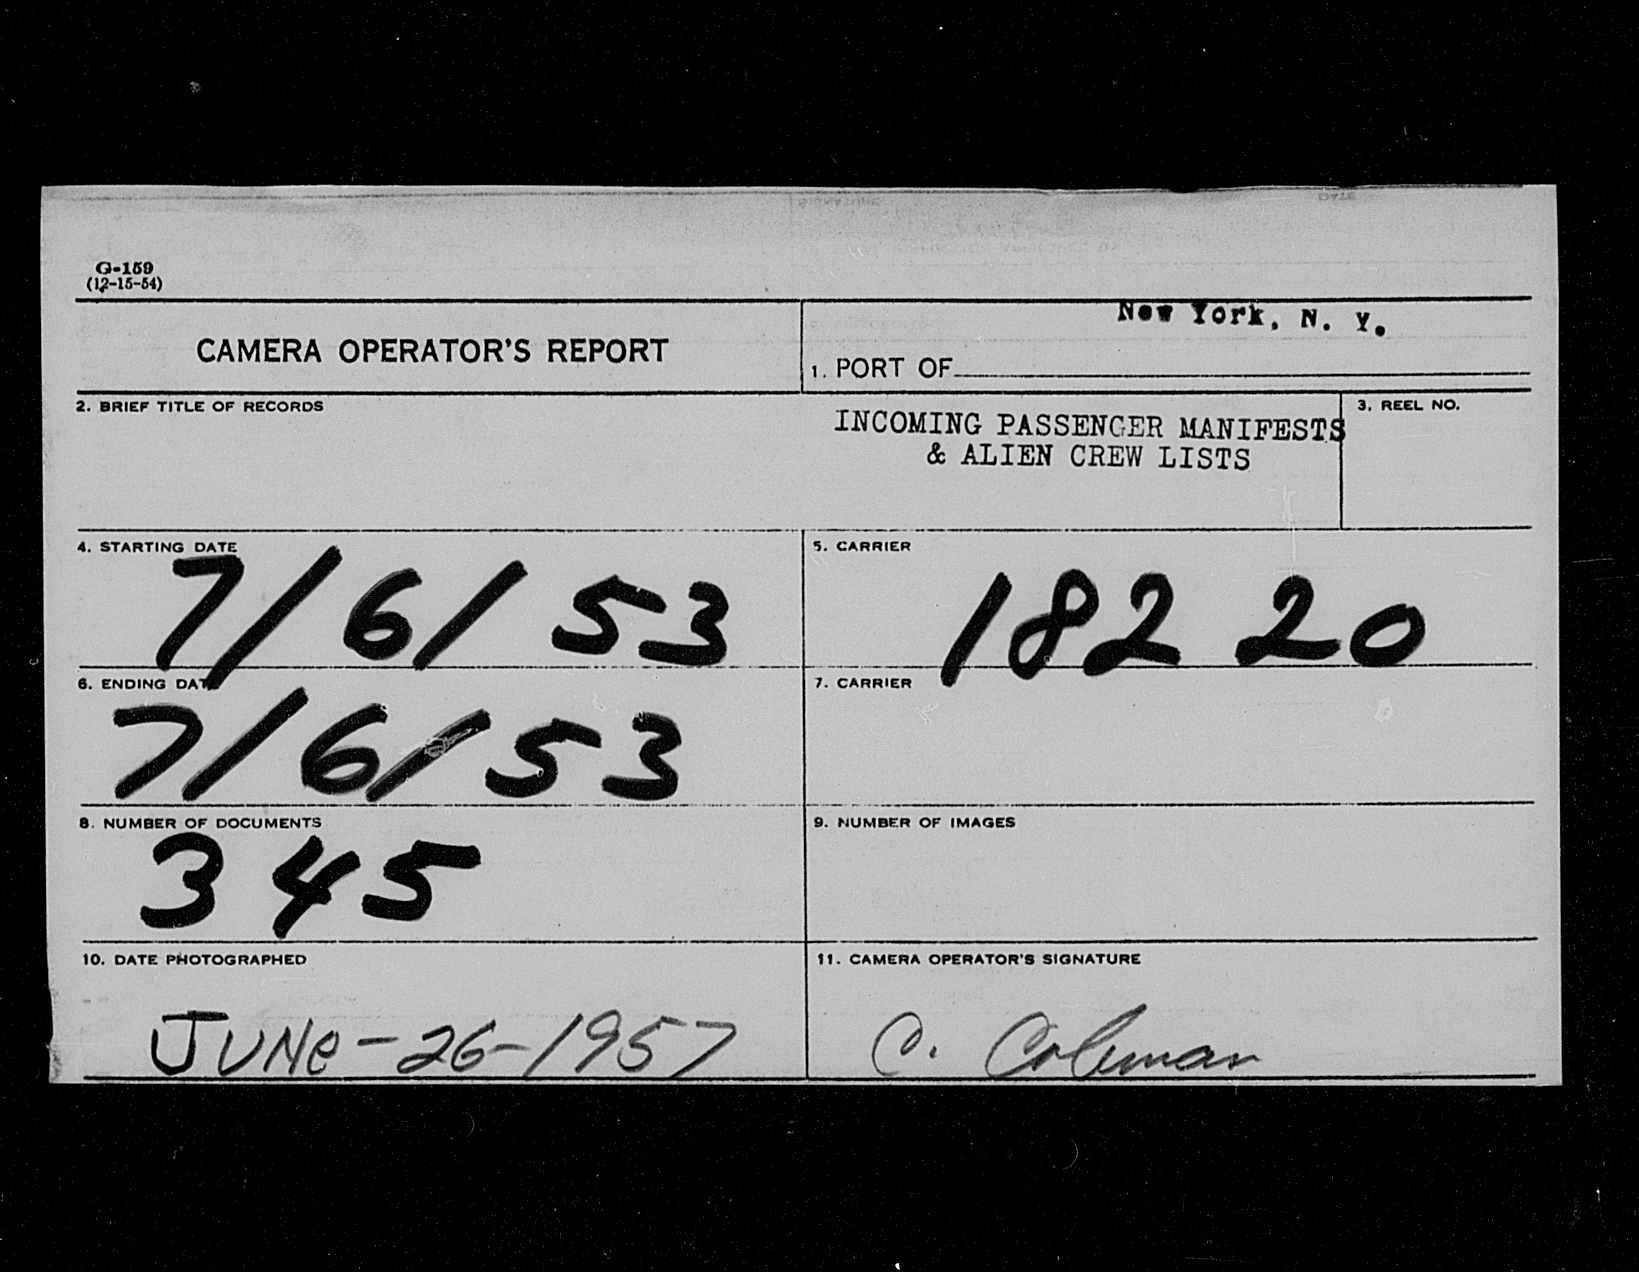 G-159
(12-15-54)
CAMERA OPERATOR'S REPORT
New York, N. Y.
1. PORT OF
2. BRIEF TITLE OF RECORDS
INCOMING PASSENGER MANIFESTS
& ALIEN CREW LISTS
3. REEL NO.
4. STARTING DATE
7/6/53
5. CARRIER
182 20
6. ENDING DATE
7/6/53
7. CARRIER
8. NUMBER OF DOCUMENTS
345
9. NUMBER OF IMAGES
10. DATE PHOTOGRAPHED
JUNe-26-1957
11. CAMERA OPERATOR'S SIGNATURE
C. Coleman